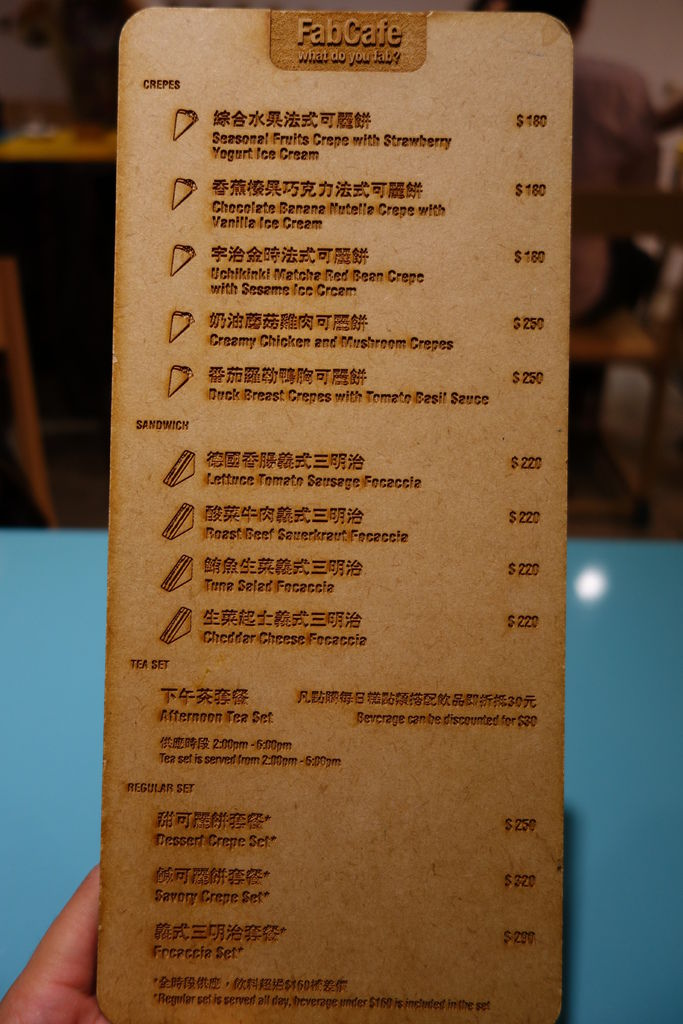 FabCafe
what do you fab?
CREPES
綜合水果法式可麗餅 $180
Seasonal Fruits Crepe with Strawberry
Yogurt Ice Cream
香蕉榛果巧克力法式可麗餅 $180
Chocolate Banana Nutella Crepe with
Vanilla Ice Cream
宇治金時法式可麗餅 $180
Uchikinki Matcha Red Bean Crepe
with Sesame Ice Cream
奶油蘑菇雞肉可麗餅 $250
Creamy Chicken and Mushroom Crepes
番茄羅勒鴨胸可麗餅 $250
Duck Breast Crepes with Tomato Basil Sauce
SANDWICH
德國香腸義式三明治 $220
Lettuce Tomato Sausage Focaccia
酸菜牛肉義式三明治 $220
Roast Beef Sauerkraut Focaccia
鮪魚生菜義式三明治 $220
Tuna Salad Focaccia
生菜起士義式三明治 $220
Cheddar Cheese Focaccia
TEA SET
下午茶套餐 凡點購每日糕點類搭配飲品即折抵30元
Afternoon Tea Set Beverage can be discounted for $30
供應時段 2:00pm - 5:00pm
Tea set is served from 2:00pm - 5:00pm
REGULAR SET
甜可麗餅套餐* $250
Dessert Crepe Set*
鹹可麗餅套餐* $320
Savory Crepe Set*
義式三明治套餐* $290
Focaccia Set*
*全時段供應，飲料超過$160補差價
*Regular set is served all day, beverage under $160 is included in the set